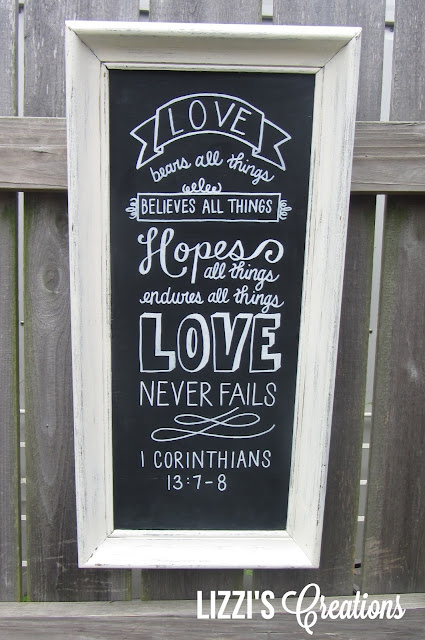 LOVE
bears all things
BELIEVES ALL THINGS
Hopes
all things
endures all things
LOVE
NEVER FAILS
1 CORINTHIANS
13:7-8
LIZZI'S Creations